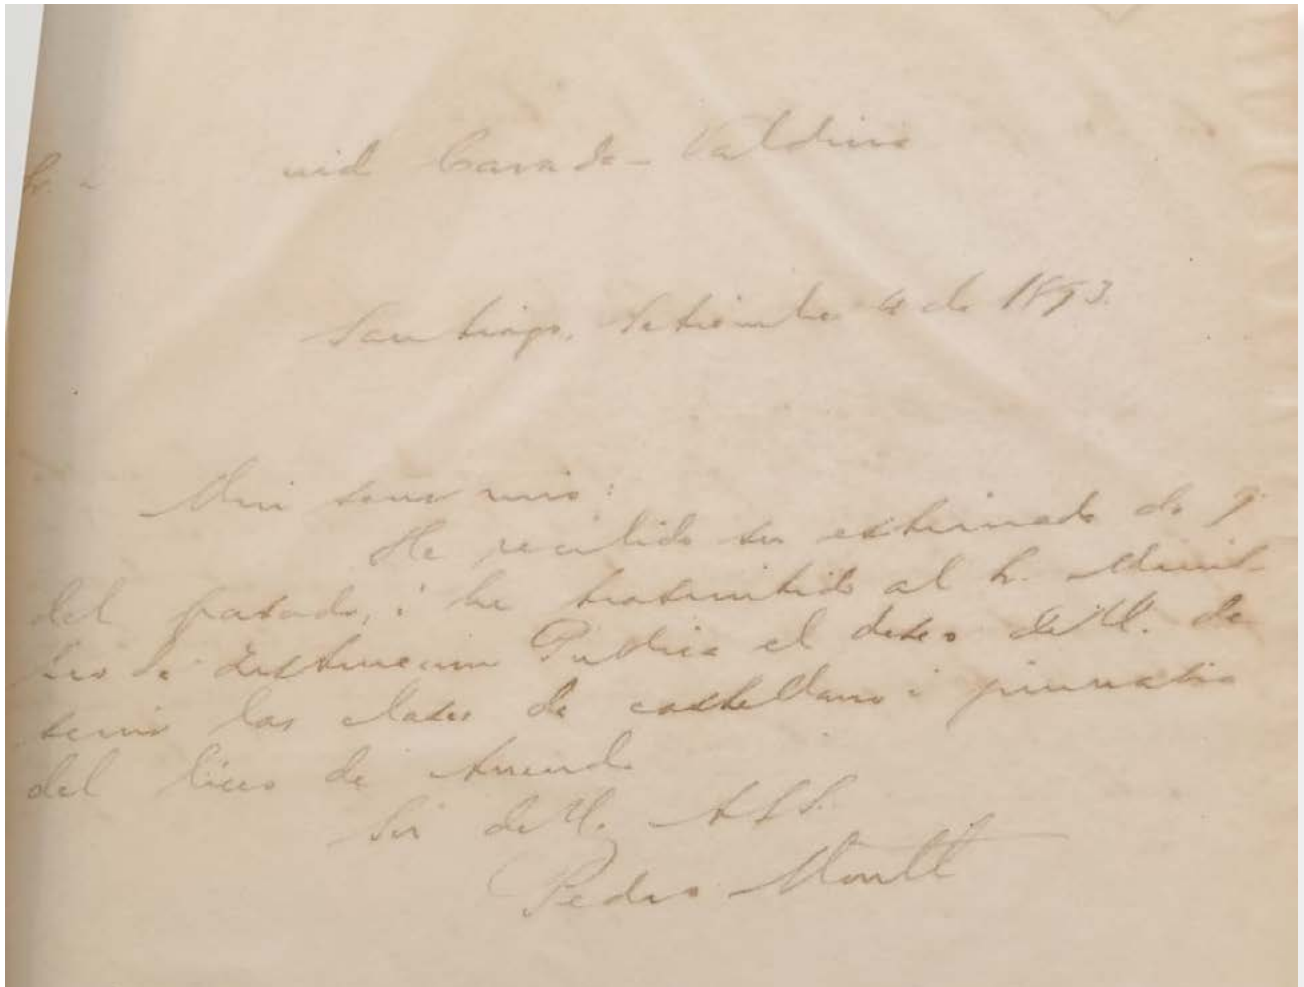 Casado - Valdivia
Santiago, Setiembre 4 de 1893.
Mui señor mio:
He recibido su estimada de
del pasado, i he trasmitido al S. Minis-
tro de Instruccion Pública el deseo de U. de
servir las clases de castellano i jimnasia
del liceo de
Soi de U. A S S.
Pedro Montt